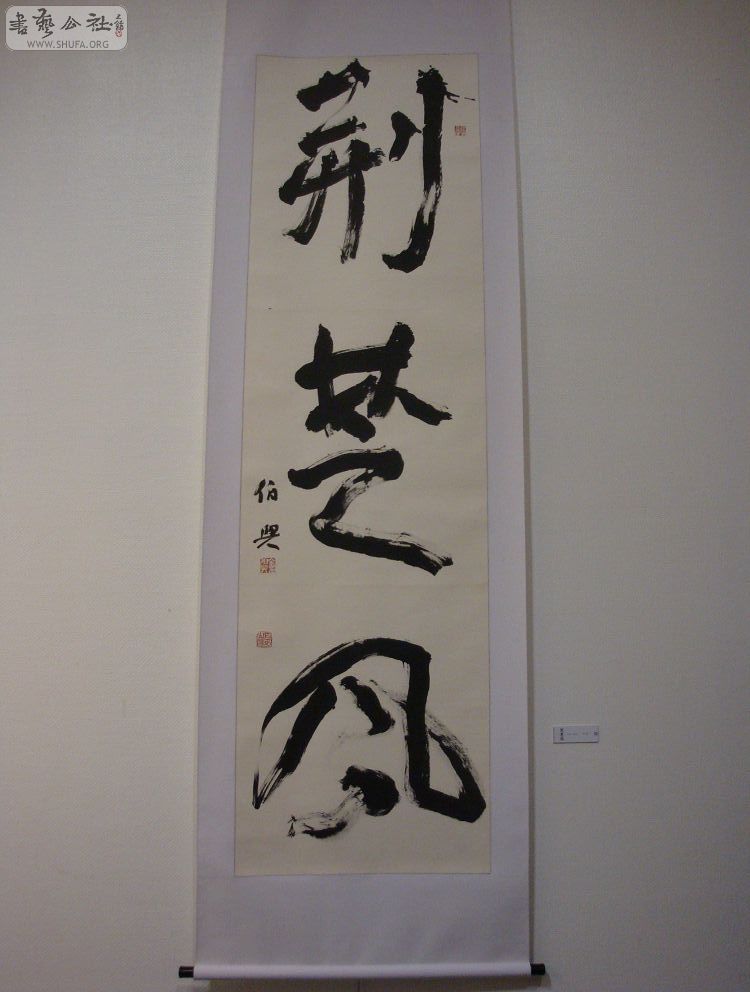 書藝公社
WWW.SHUFA.ORG
荆楚风
伯興